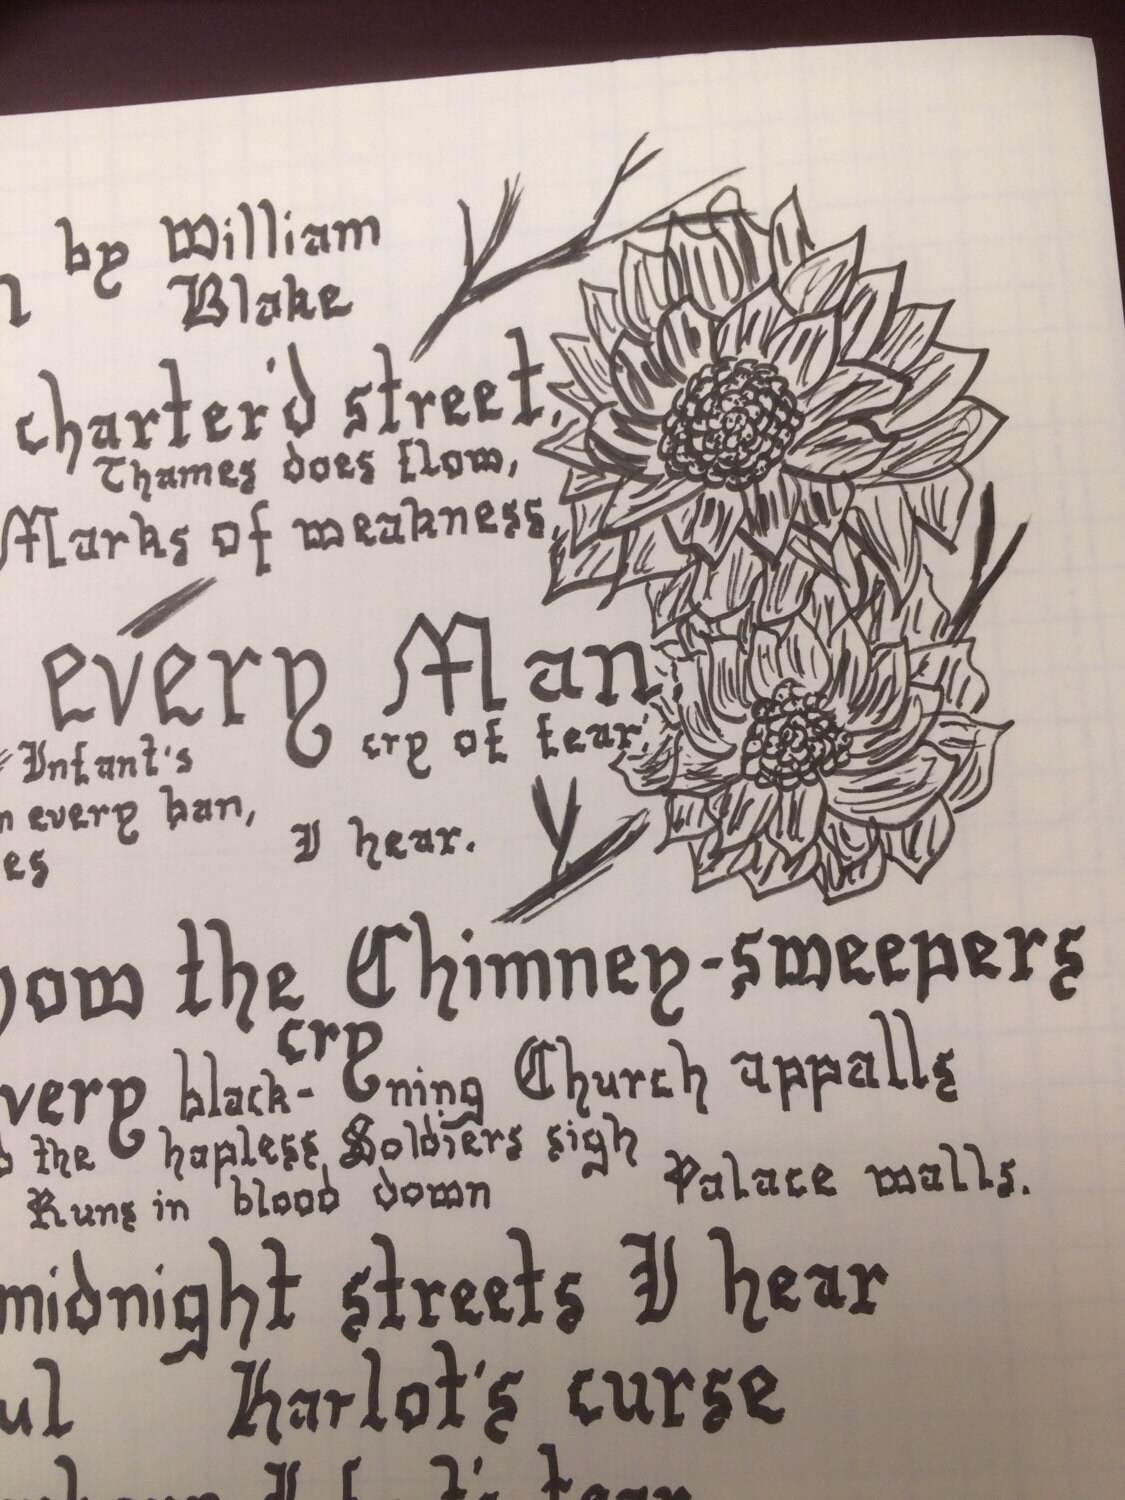 n by William
Blake
charter'd street,
Thames does flow,
Marks of weakness,
every Man,
Infant's cry of fear,
n every ban,
es I hear.
how the Chimney-sweepers
cry
very black-ning Church appalls
d the hapless Soldiers sigh
Runs in blood down Palace walls.
midnight streets I hear
ul Harlot's curse
tear